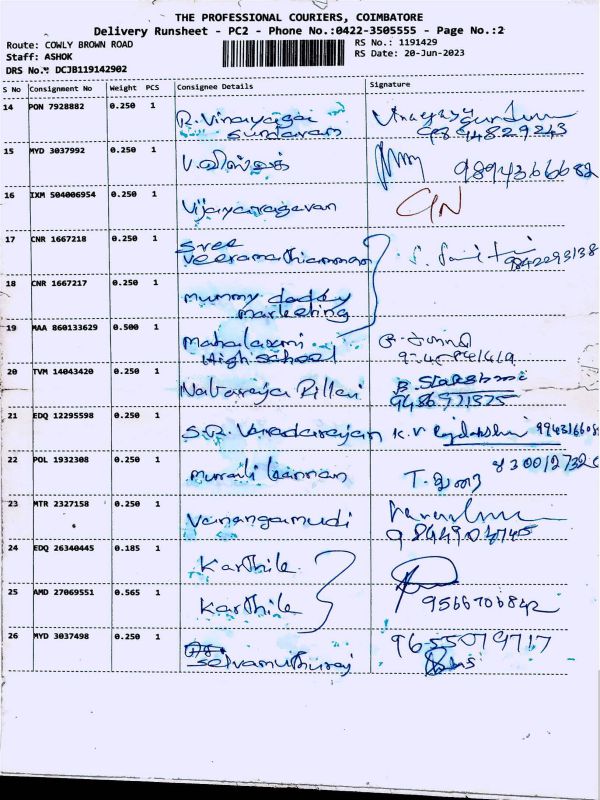 THE PROFESSIONAL COURIERS, COIMBATORE
Delivery Runsheet - PC2 - Phone No.:0422-3505555 - Page No.:2
Route: COWLY BROWN ROAD RS No.: 1191429
Staff: ASHOK RS Date: 20-Jun-2023
DRS No.: DCJB119142902
S No Consignment No Weight PCS Consignee Details Signature
14 PON 7928882 0.250 1 R. Vinayagai
Sundaram
15 MYD 3037992 0.250 1 V. விஸ்வக் 9894366682
16 IXM 504006954 0.250 1 Vijayaragavan
17 CNR 1667218 0.250 1 Sree
Veeramathiamman 9842293138
18 CNR 1667217 0.250 1 mummy daddy
marketing
19 MAA 860133629 0.500 1 Mahalaxmi
High school
20 TVM 14043420 0.250 1 Nataraja Pillai
9486971375
21 EDQ 12295598 0.250 1 S.R. Varadarajan K.V
22 POL 1932308 0.250 1 murali kannan T.
23 MTR 2327158 0.250 1 Vanangamudi
24 EDQ 26340445 0.185 1 Karthik
25 AMD 27069551 0.565 1 Karthik 9566706842
26 MYD 3037498 0.250 1 9655079717
Selvamuthuraj